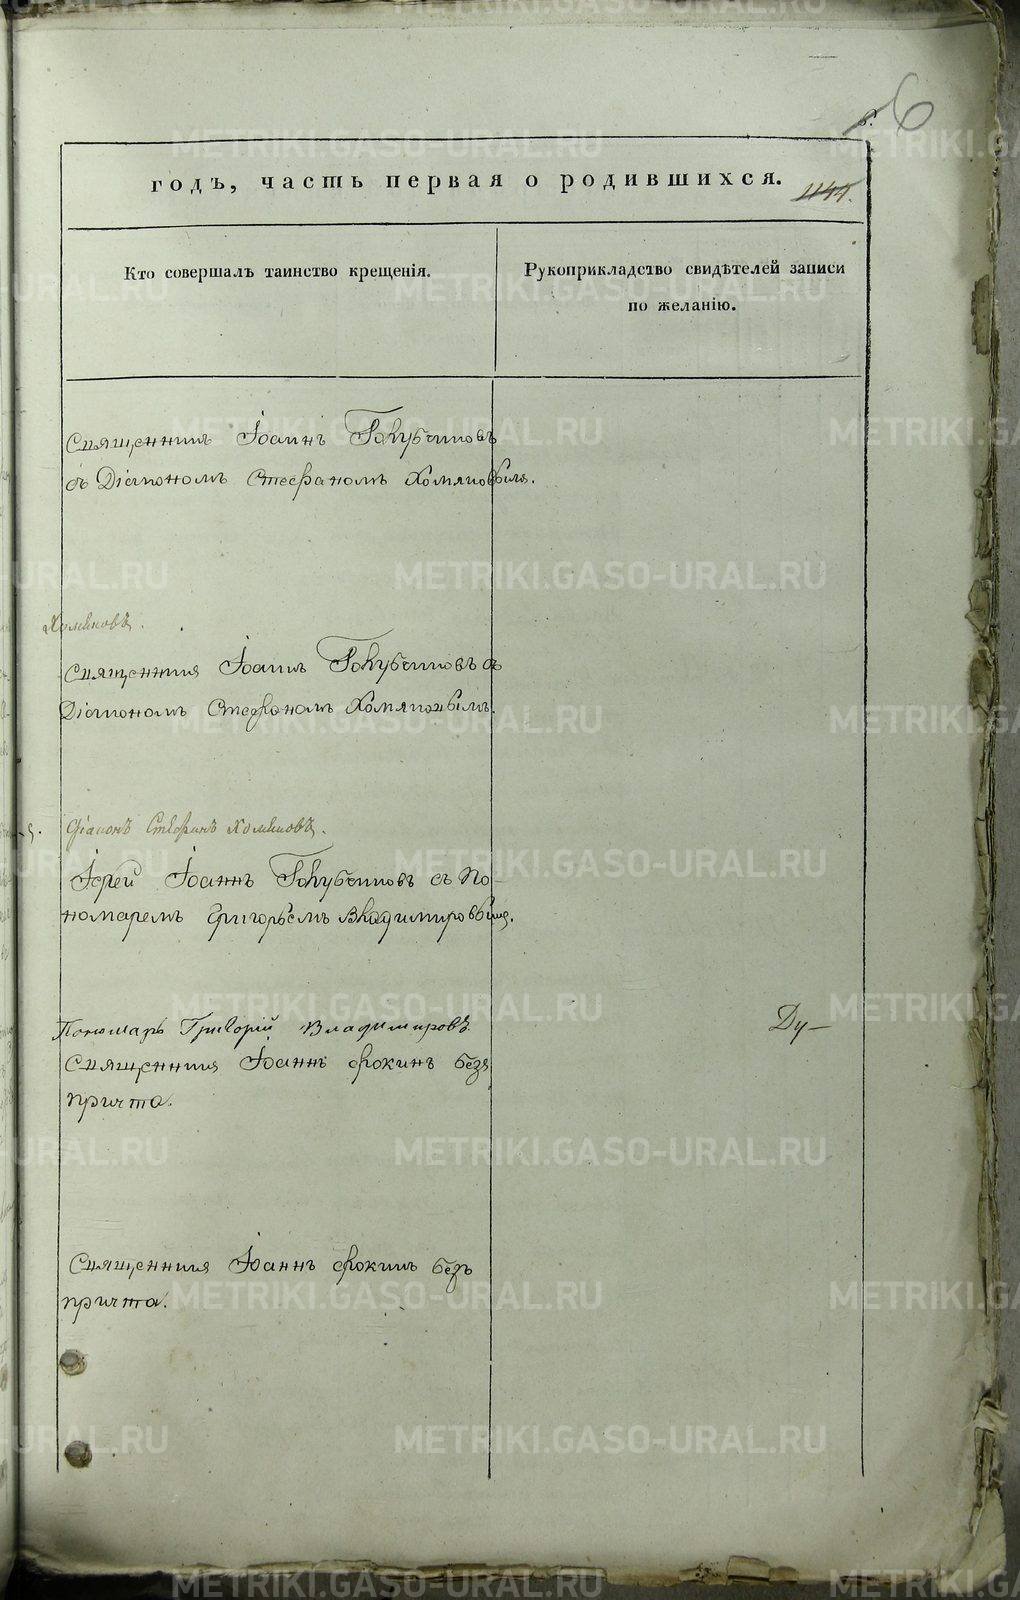 6
годъ, часть первая о родившихся. 1144.
Кто совершалъ таинство крещенія.
Рукоприкладство свидѣтелей записи
по желанію.
Священникъ Іоаннъ Голубчиковъ
съ Діакономъ Стефаномъ Хомяковымъ.
Хомяковъ.
Священникъ Іоаннъ Голубчиковъ съ
Діакономъ Стефаномъ Хомяковымъ.
Діаконъ Стефанъ Хомяковъ.
Іерей Іоаннъ Голубчиковъ съ По-
номаремъ Григорьемъ Владимировымъ.
Пономарь Григорій Владимировъ
Ду-
Священникъ Іоаннъ Фокинъ безъ
причта.
Священникъ Іоаннъ Фокинъ безъ
причта.
METRIKI.GASO-URAL.RU